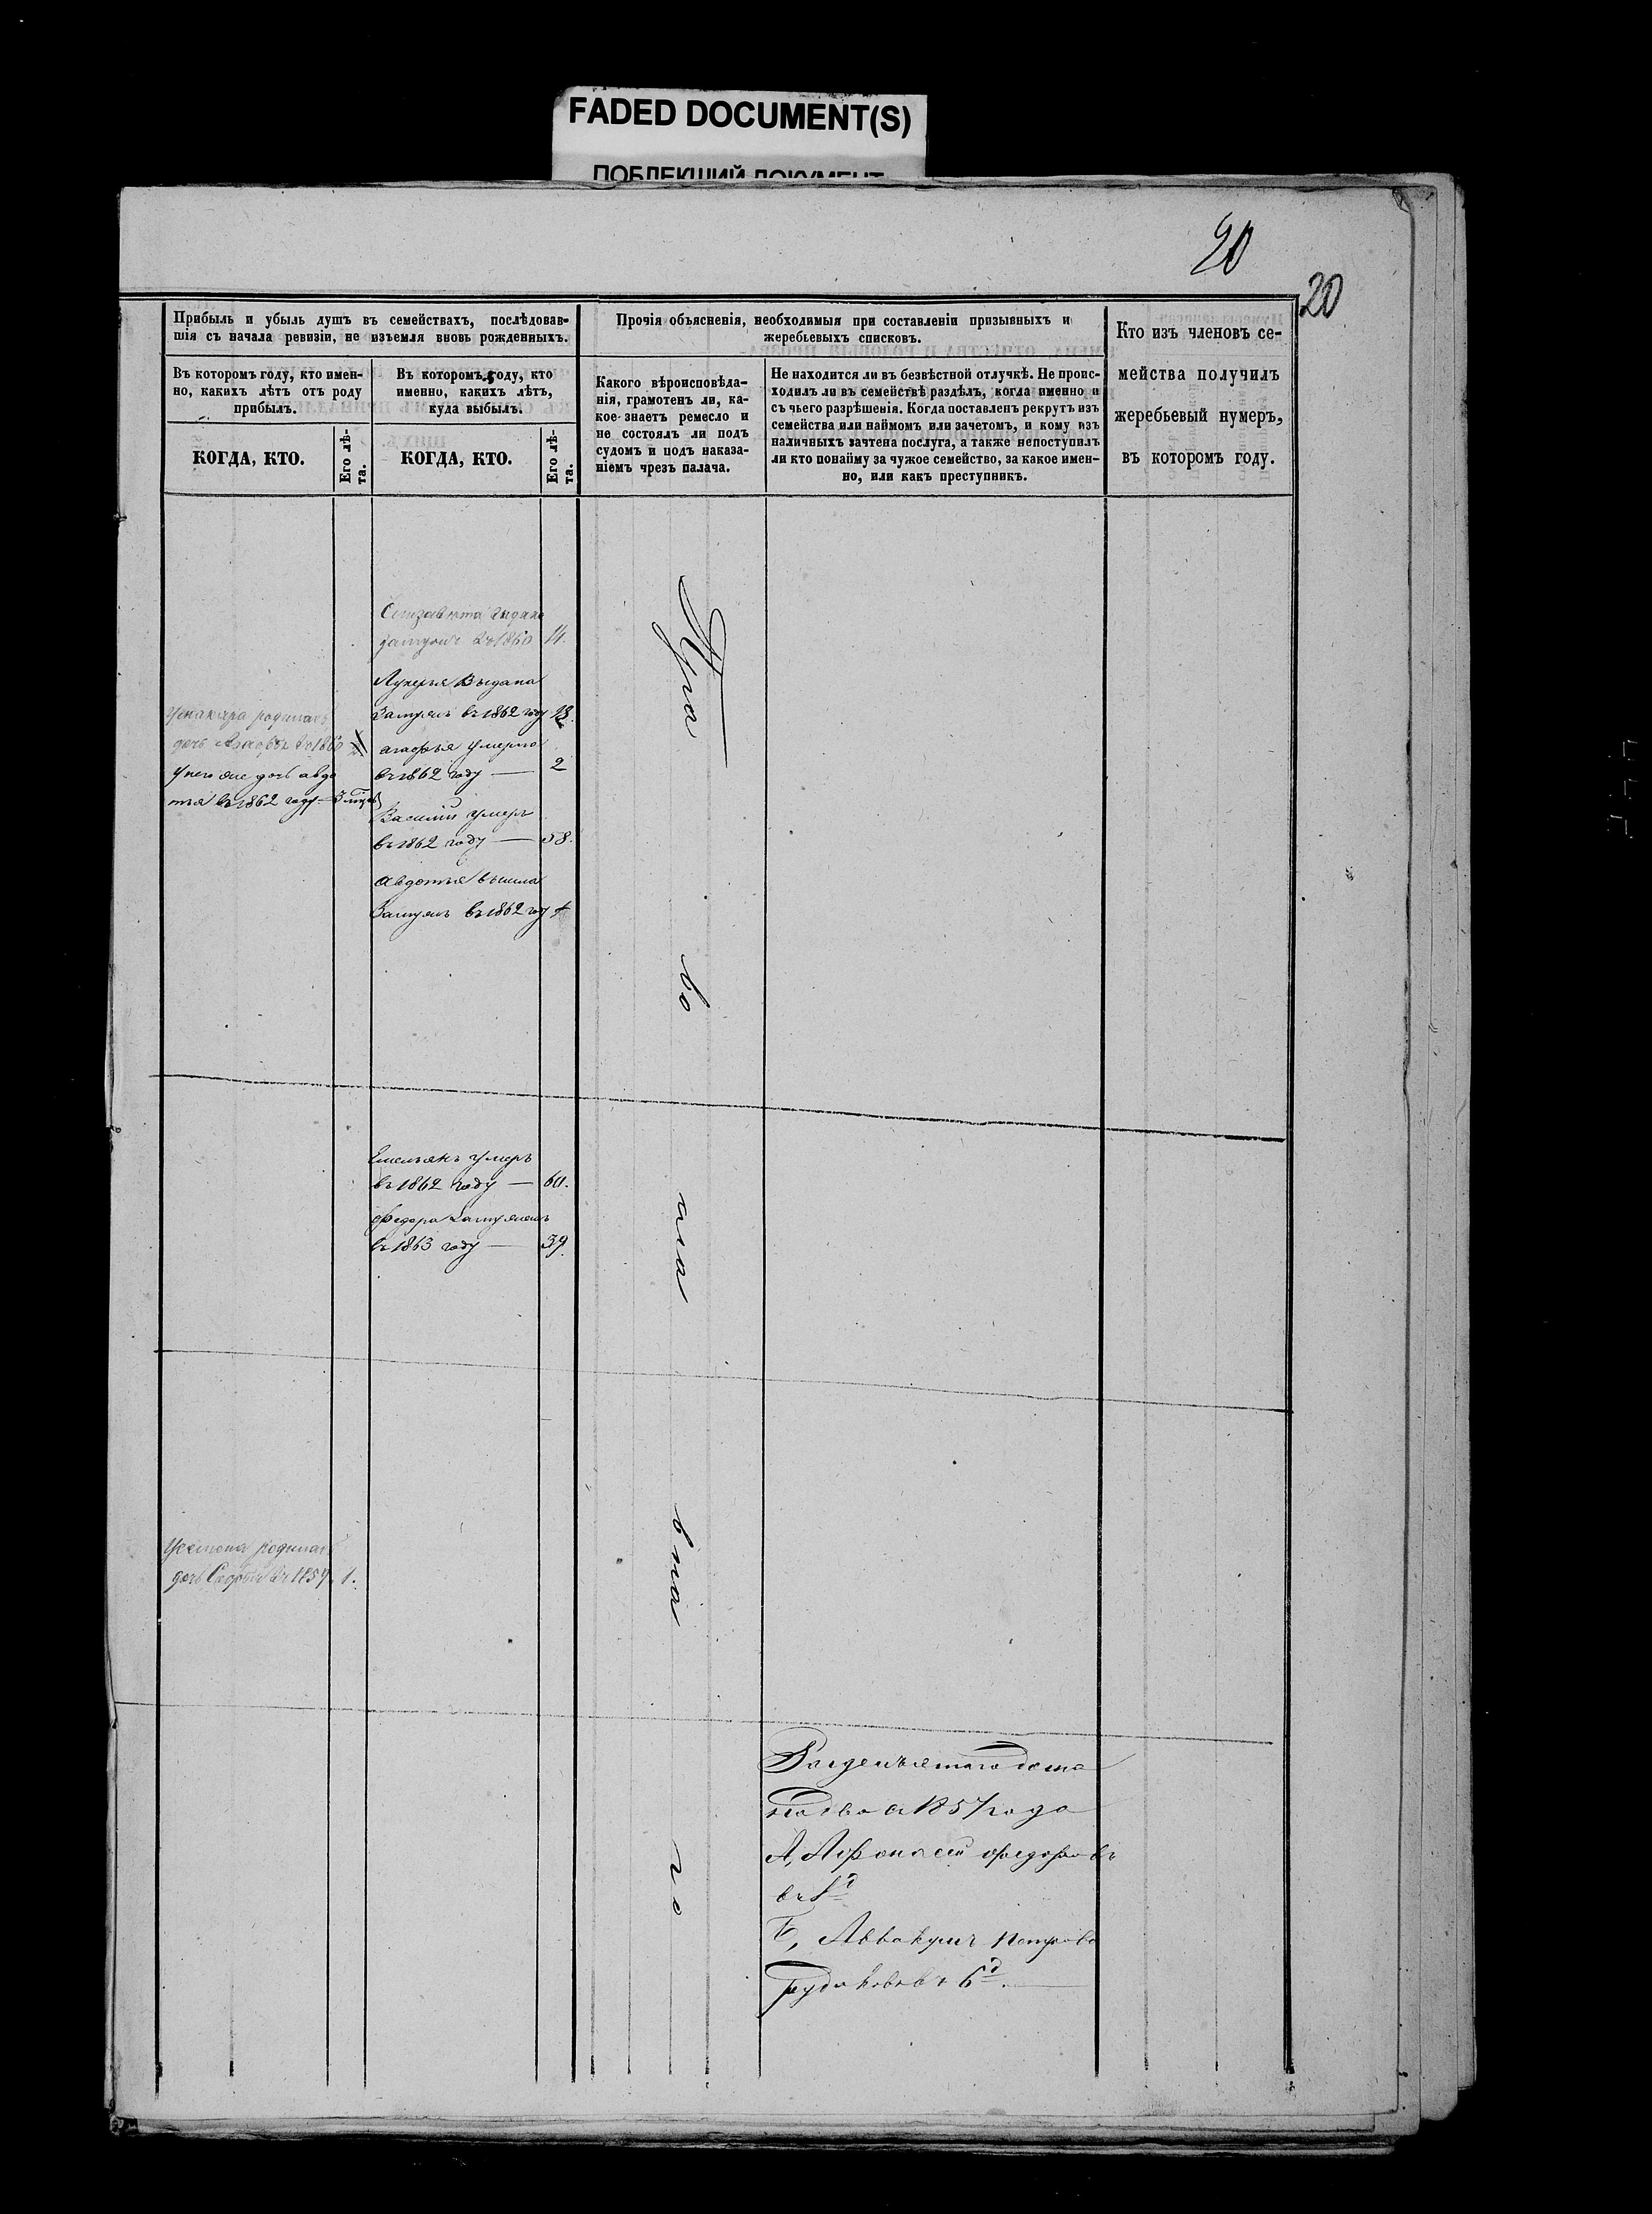 FADED DOCUMENT(S)
ПОБЛЕКШИЙ ДОКУМЕНТ
20
20
Прибыль и убыль душъ въ семействахъ, послѣдовав-
шія съ начала ревизіи, не изъемля вновь рожденныхъ.
Въ которомъ году, кто имен-
но, какихъ лѣтъ отъ роду
прибылъ.
КОГДА, КТО.
Его лѣ-
та.
Въ которомъ году, кто
именно, какихъ лѣтъ,
куда выбылъ.
КОГДА, КТО.
Его лѣ-
та.
Прочія объясненія, необходимыя при составленіи призывныхъ и
жеребьевыхъ списковъ.
Какого вѣроисповѣда-
нія, грамотенъ ли, ка-
кое знаетъ ремесло и
не состоялъ ли подъ
судомъ и подъ наказа-
ніемъ чрезъ палача.
Не находится ли въ безвѣстной отлучкѣ. Не проис-
ходилъ ли въ семействѣ раздѣлъ, когда именно и
съ чьего разрѣшенія. Когда поставленъ рекрутъ изъ
семейства или наймомъ или зачетомъ, и кому изъ
наличныхъ зачтена послуга, а также непоступилъ
ли кто понайму за чужое семейство, за какое имен-
но, или какъ преступникъ.
Кто изъ членовъ се-
мейства получилъ
жеребьевый нумеръ,
въ которомъ году.
родилась
дочь 1860
у него же дочь авдо
тья въ 1862 году — 3
Елизавета выдана
замужъ въ 1860 14.
Лукерья Выдана
Замужъ въ 1862 году
агафья умерла
въ 1862 году — 2
Василий умеръ
въ 1862 году — 58.
авдотья вышла
Замужъ въ 1862 году
Емельянъ умеръ
въ 1862 году — 60.
федора Замужемъ
въ 1863 году — 39.
родилась
дочь въ 1857 1.
Пра
во
сла
вна
го
году
съ 1857 года
А, Афонасей федоровъ
Б, Аввакумъ Петровъ